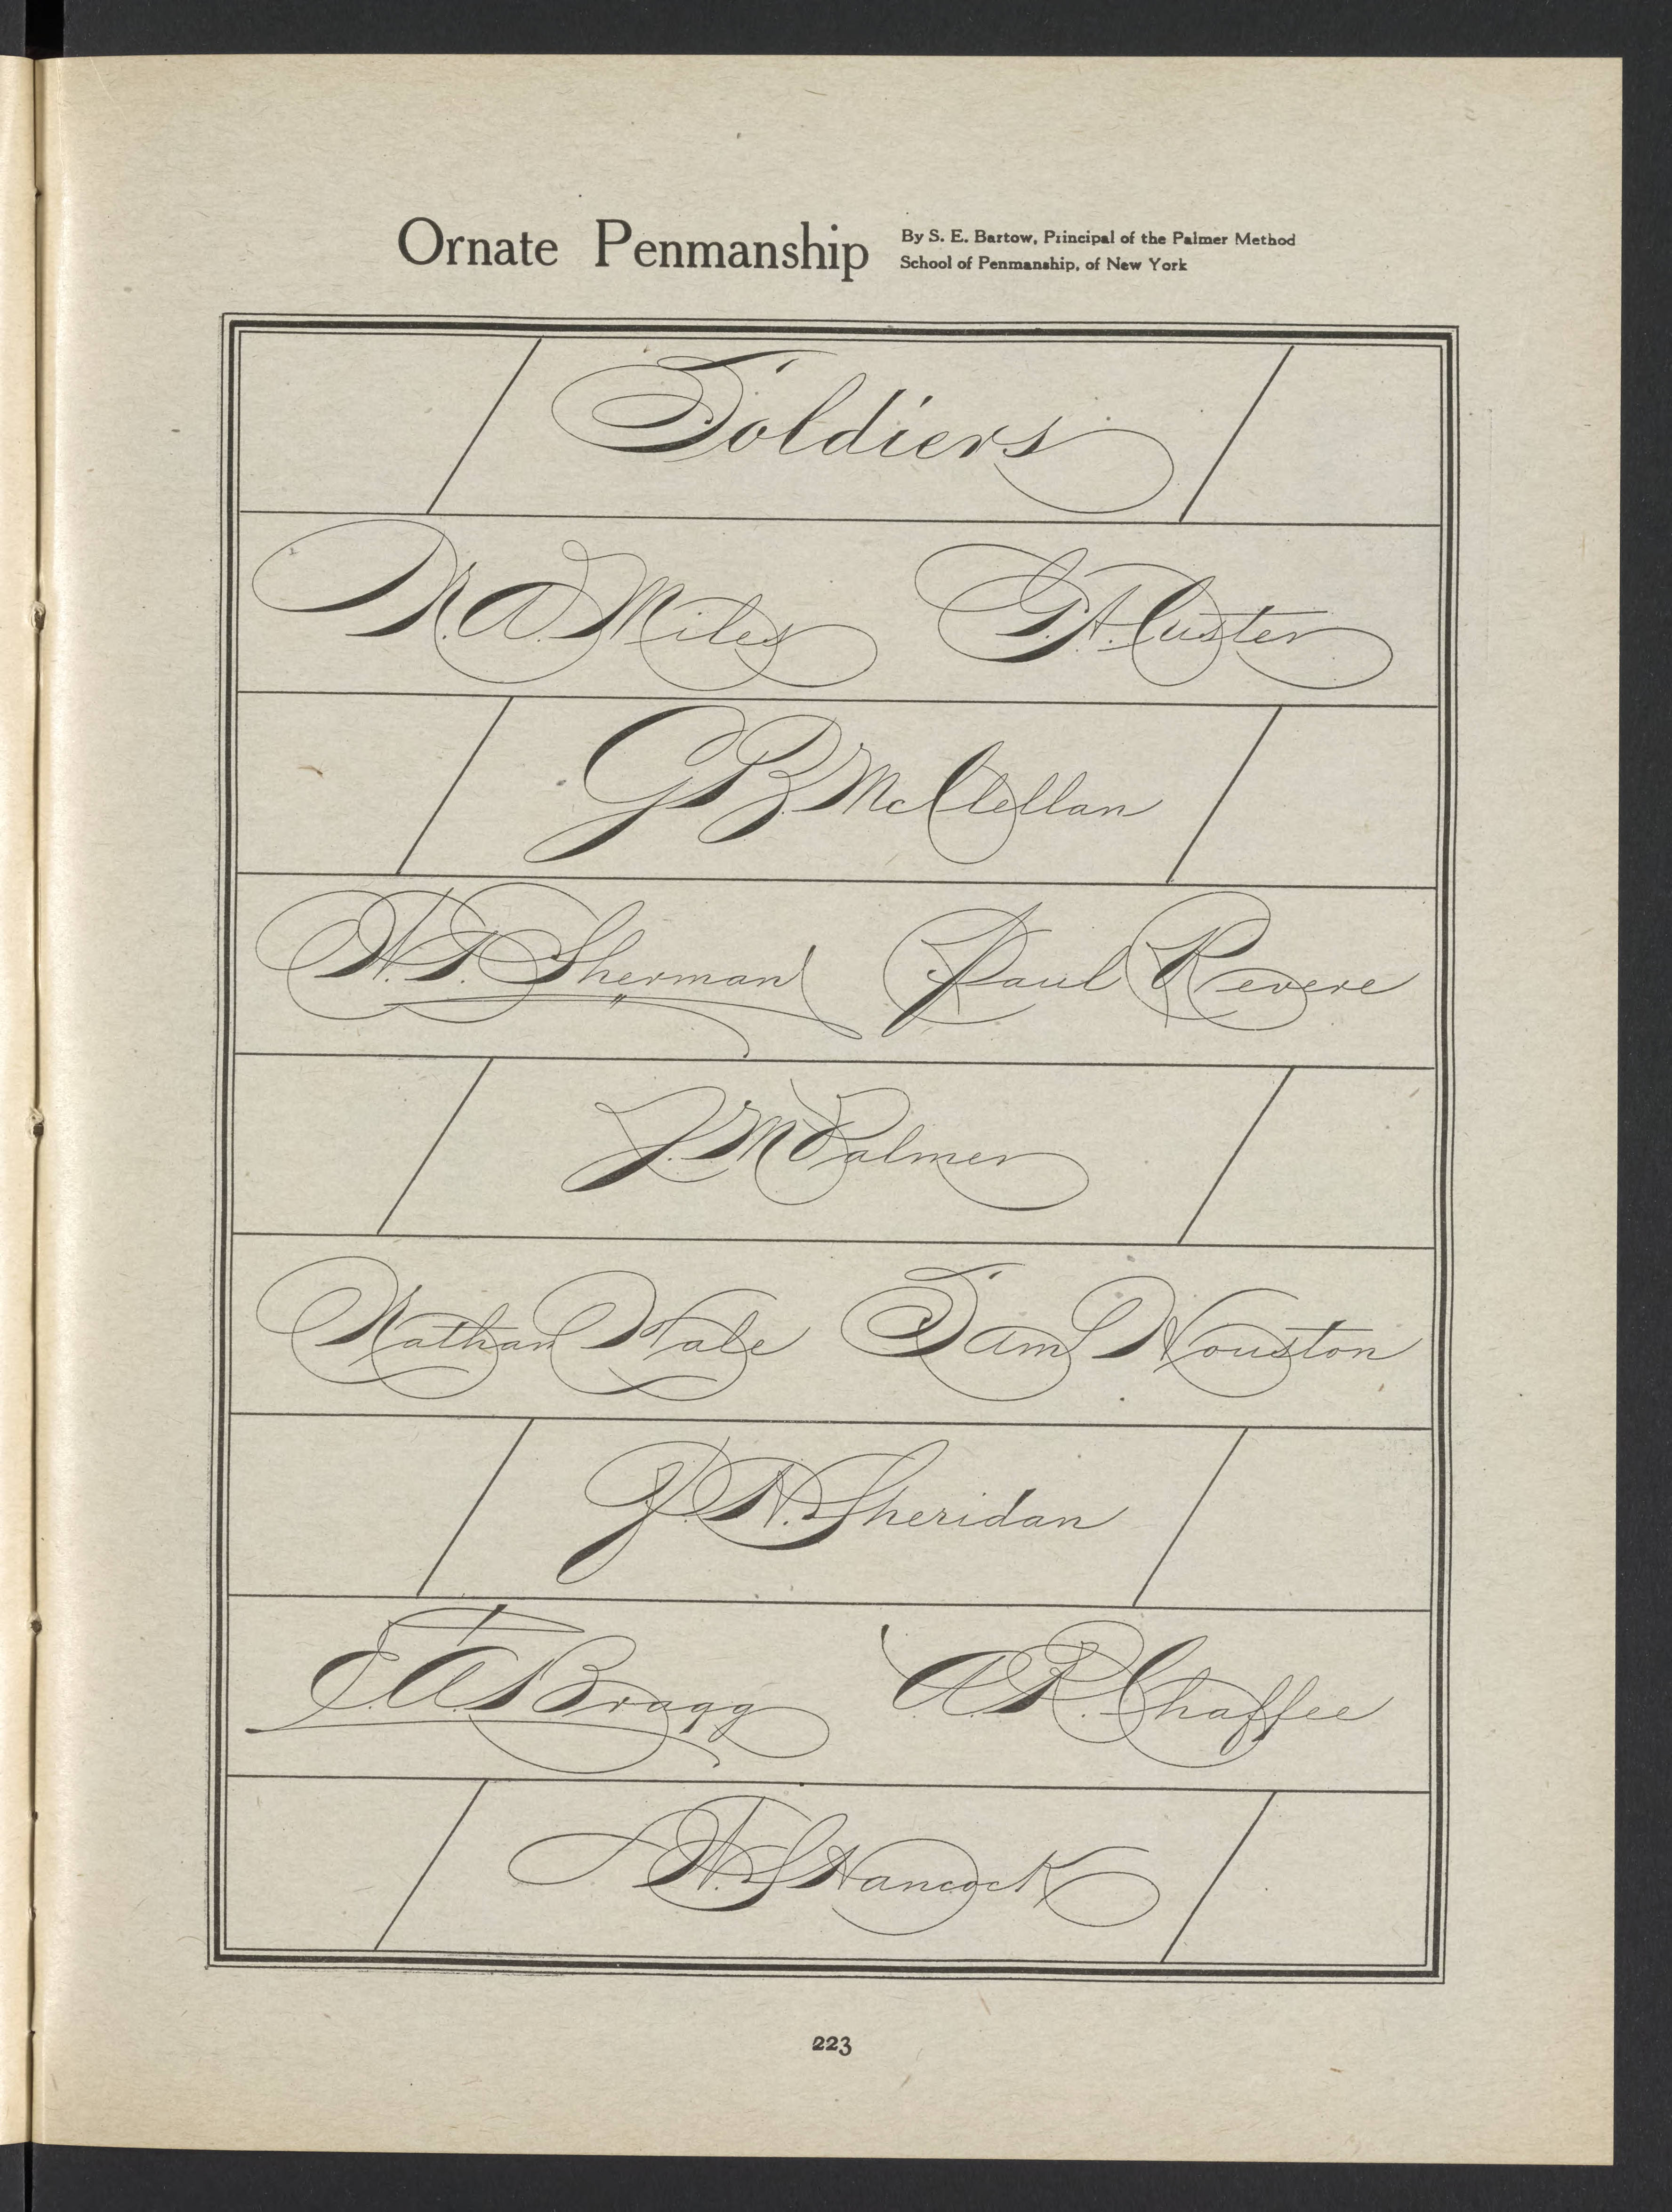 Ornate Penmanship
By S. E. Bartow, Principal of the Palmer Method
School of Penmanship, of New York
Soldiers
N. A. Miles G. A. Custer
G B McClellan
W. T. Sherman Paul Revere
J. M Palmer
Nathan Hale Sam Houston
P. H. Sheridan
E. A. Bragg A. R. Chaffee
W. S Hancock
223